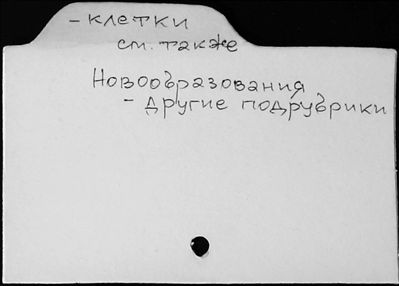 - клетки
см. также
Новообразования
- другие подрубрики